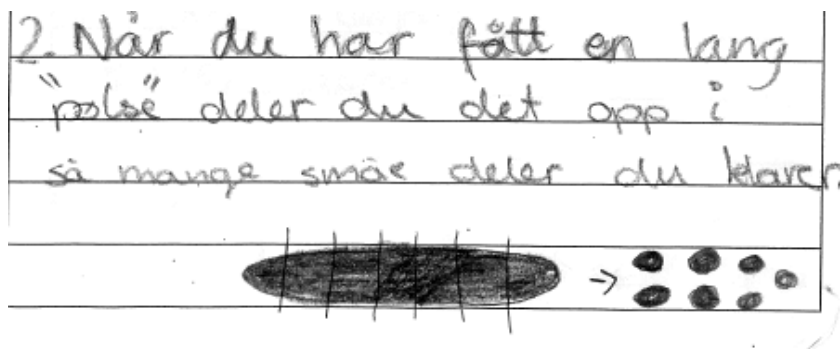 2. Når du har fått en lang
"pølse" deler du det opp i
så mange småe deler du klarer